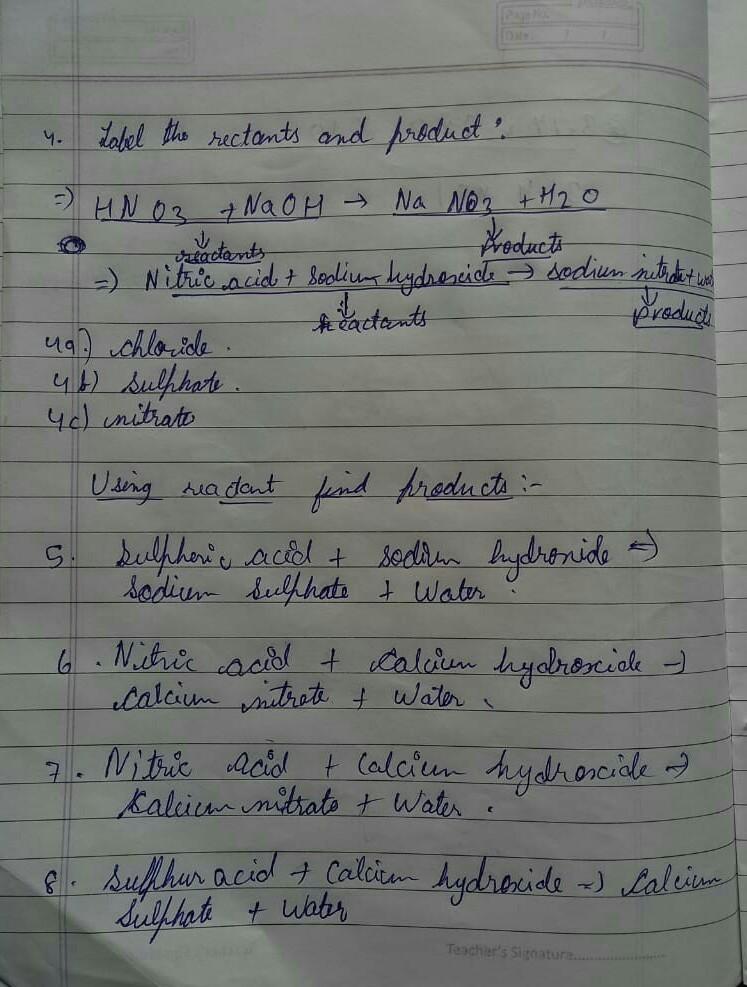 Page No.
Date: / /
4. Label the rectants and product :
=) HNO3 + NaOH → NaNO3 + H2O
↓ reactants ↓ Products
=) Nitric acid + sodium hydroxide → sodium nitrate + wat
↓ reactants ↓ Products
4a) chloride.
4b) sulphate.
4c) nitrate
Using reactant find products :-
5. Sulpheric acid + sodium hydroxide =)
Sodium Sulphate + Water.
6. Nitric acid + Calcium hydroxcide →
Calcium nitrate + Water.
7. Nitric acid + Calcium hydroxcide →
Kalcium nitrate + Water.
8. Sulphur acid + Calcium hydroxide =) Calcium
Sulphate + Water
Teacher's Signature....................